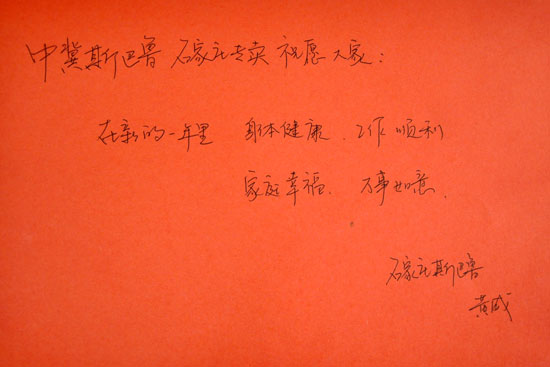 中冀斯巴鲁 石家庄专卖 祝愿大家:
在新的一年里 身体健康、工作顺利
家庭幸福、万事如意
石家庄斯巴鲁
黄成